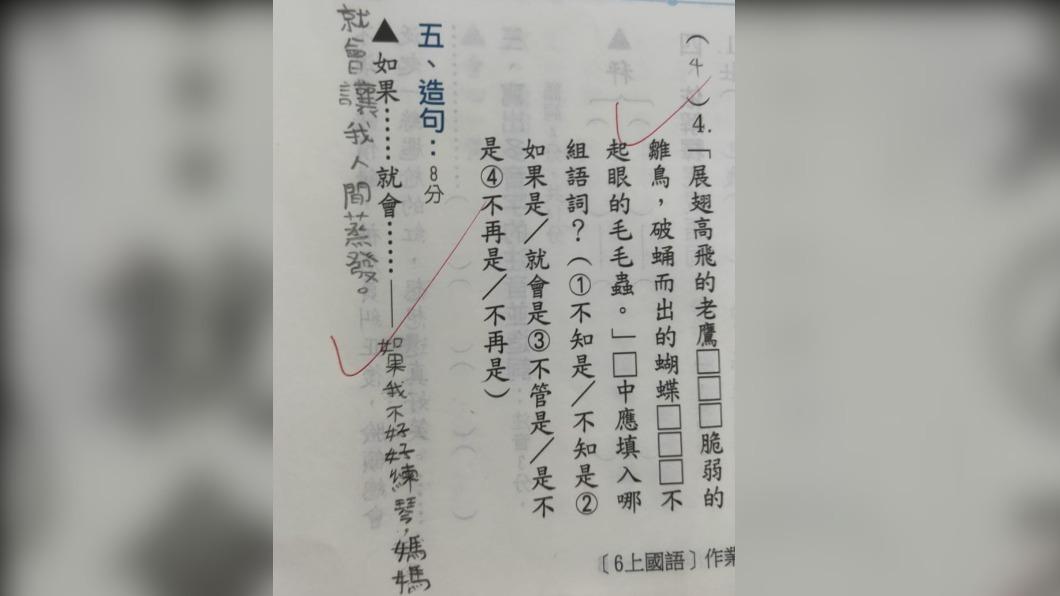 (4)4.「展翅高飛的老鷹□□□脆弱的
雛鳥，破蛹而出的蝴蝶□□□不
起眼的毛毛蟲。」□中應填入哪
組語詞？(①不知是／不知是②
如果是／就會是③不管是／是不
是④不再是／不再是)
五、造句：8分
▲如果……就會……——如果我不好好練琴，媽媽
就會讓我人間蒸發。
〔6上國語〕作業